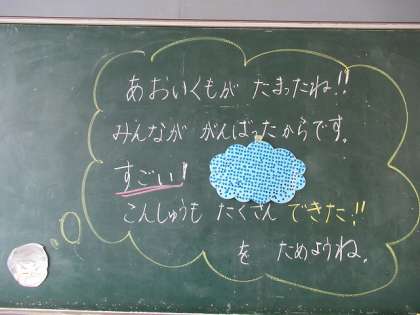 あおいくもが たまったね!!
みんなが がんばったからです。
すごい!
こんしゅうも たくさん できた!!
を ためようね。